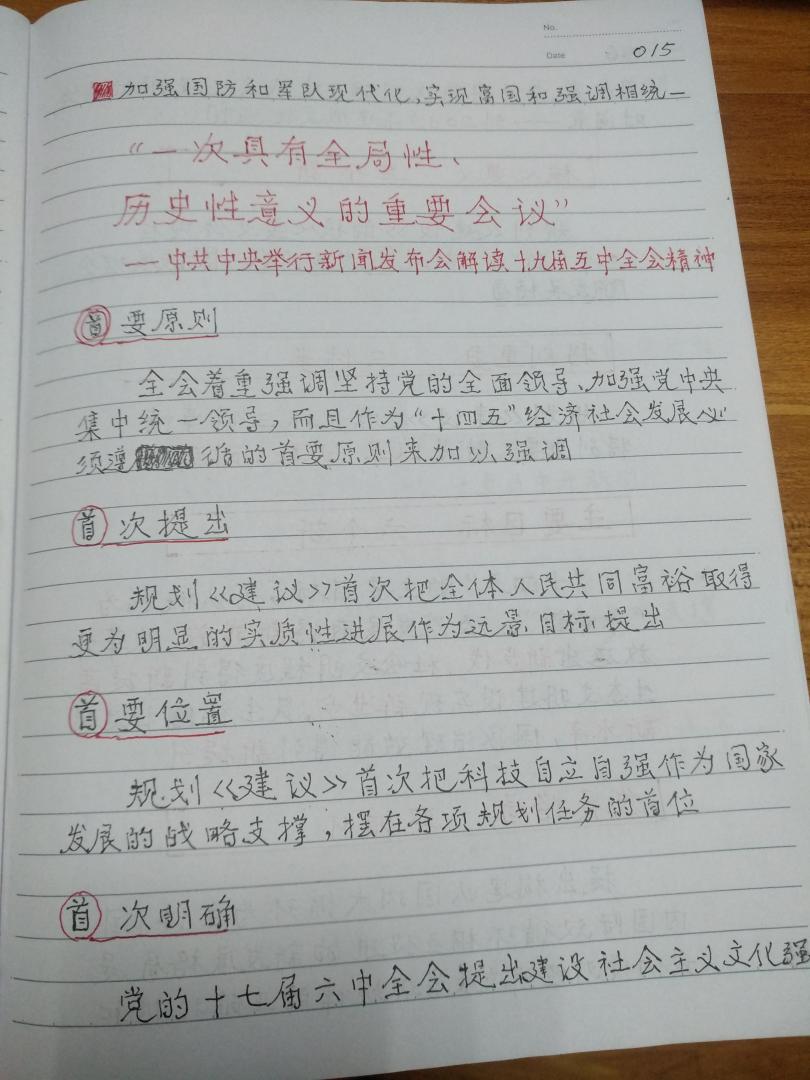 No.
Date 015
加强国防和军队现代化,实现富国和强调相统一
“一次具有全局性、
历史性意义的重要会议”
——中共中央举行新闻发布会解读十九届五中全会精神
首要原则
全会着重强调坚持党的全面领导、加强党中央
集中统一领导,而且作为“十四五”经济社会发展必
须遵循的首要原则来加以强调
首次提出
规划《建议》首次把全体人民共同富裕取得
更为明显的实质性进展作为远景目标提出
首要位置
规划《建议》首次把科技自立自强作为国家
发展的战略支撑,摆在各项规划任务的首位
首次明确
党的十七届六中全会提出建设社会主义文化强